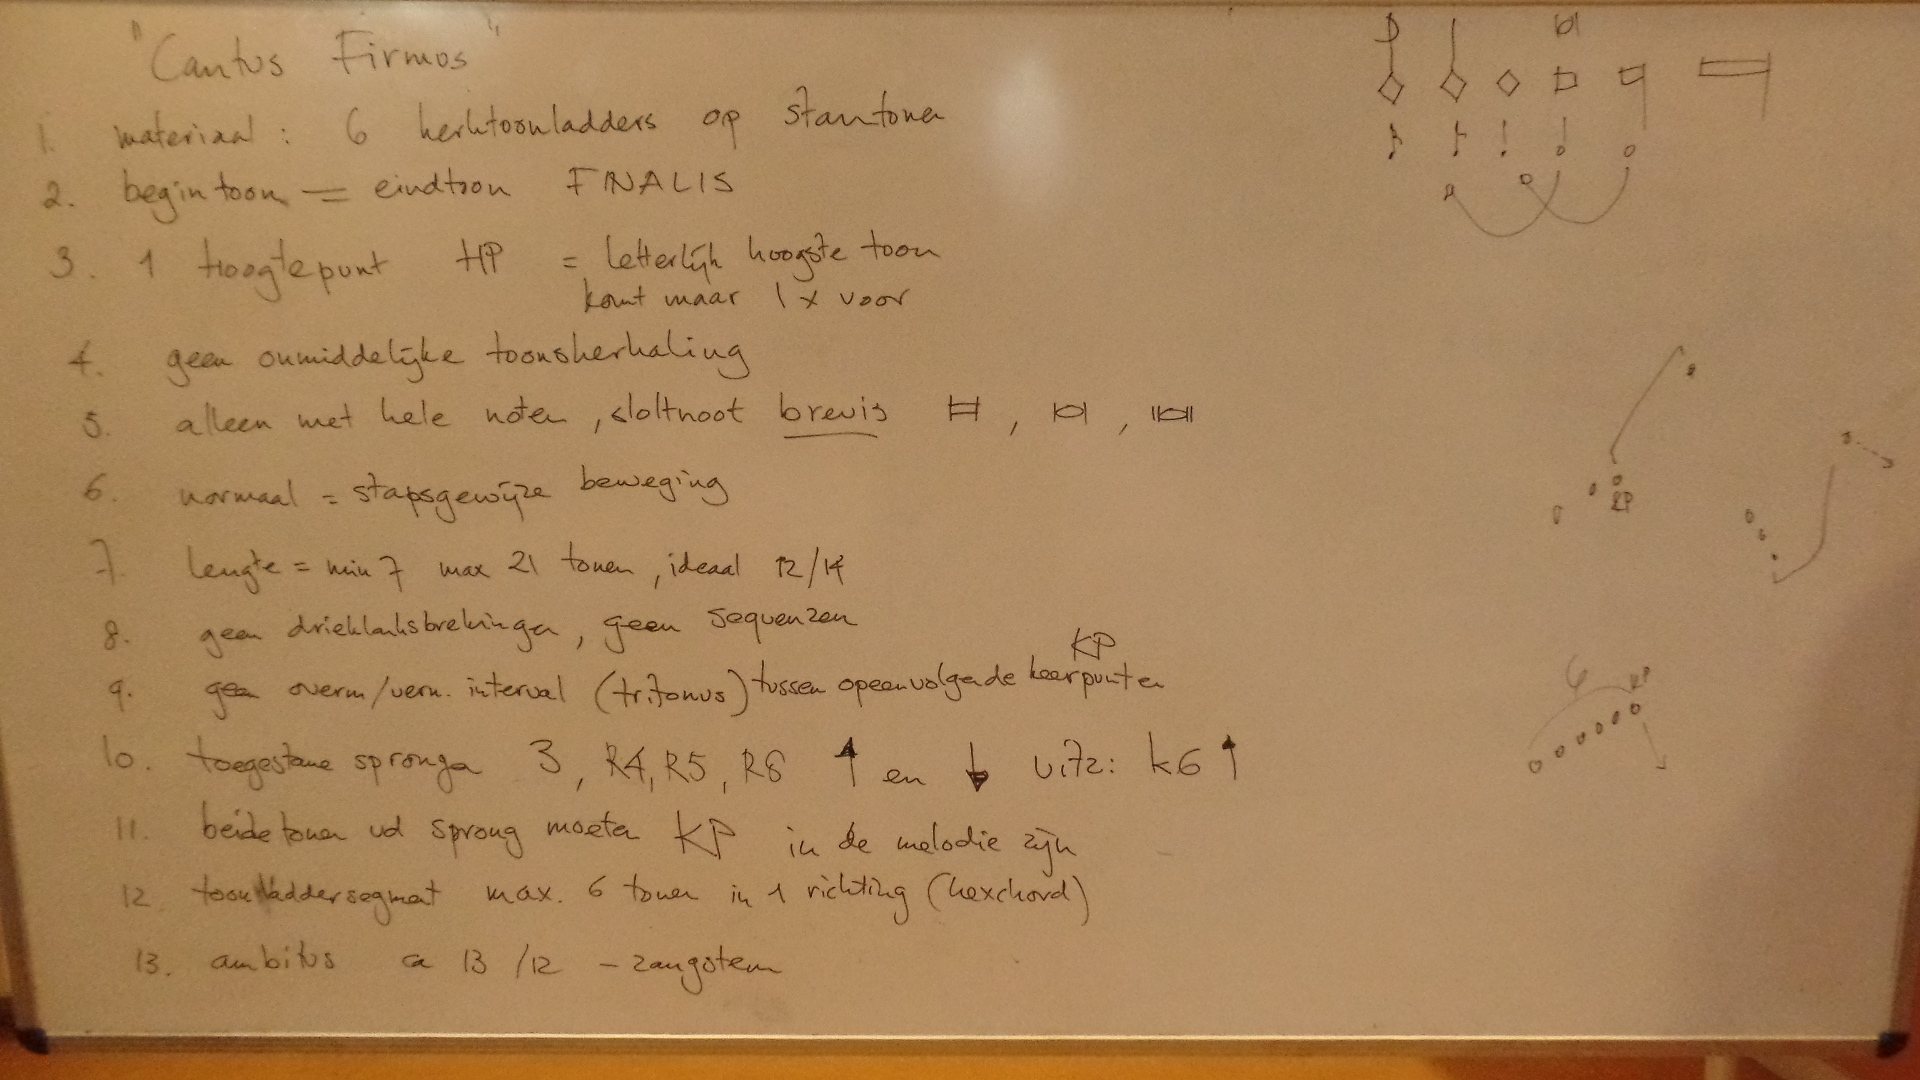 "Cantus Firmus"
1. materiaal : 6 kerktoonladders op stamtonen
2. begintoon = eindtoon FINALIS
3. 1 Hoogtepunt HP = letterlijk hoogste toon
komt maar 1 x voor
4. geen onmiddelijke toonsherhaling
5. alleen met hele noten, slotnoot brevis , ,
6. normaal = stapsgewijze beweging
7. lengte = min 7 max 21 tonen, ideaal 12/14
8. geen drieklanksbrekingen, geen sequenzen
9. geen overm/verm. interval (tritonus) tussen opeenvolgende keerpunten KP
10. toegestane sprongen 3, R4, R5, R8 ↑ en ↓ uitz: k6 ↑
11. beide tonen vd sprong moeten KP in de melodie zijn
12. toonladdersegment max. 6 tonen in 1 richting (hexchord)
13. ambitus a 13 /12 - zangstem
KP
6 KP